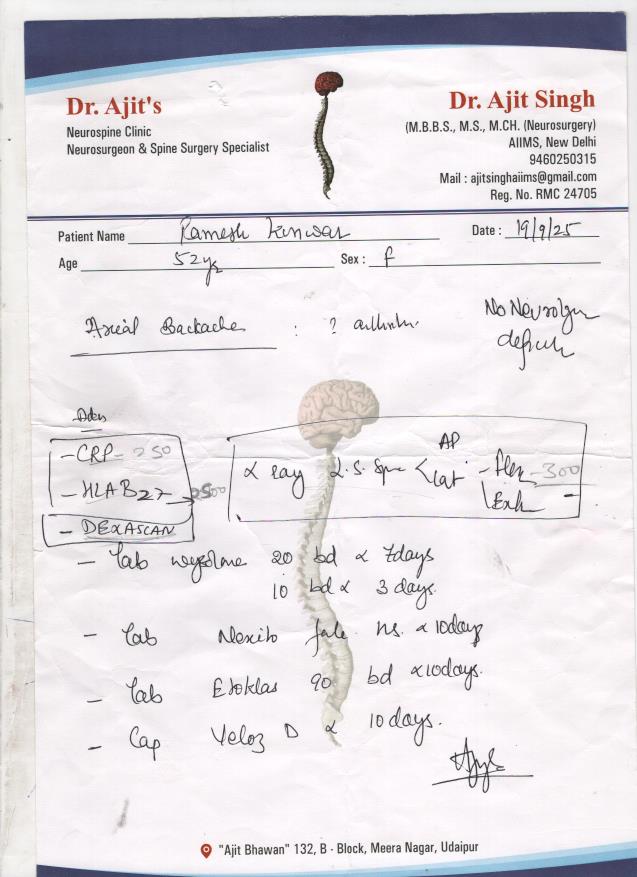 Dr. Ajit's
Neurospine Clinic
Neurosurgeon & Spine Surgery Specialist
Dr. Ajit Singh
(M.B.B.S., M.S., M.CH. (Neurosurgery)
AIIMS, New Delhi
9460250315
Mail : ajitsinghaiims@gmail.com
Reg. No. RMC 24705
Patient Name Ramesh Kunwar
Date : 19/9/25
Age 52 yr Sex : f
Axial Backache : ?
No Neurologic
deficit
- CRP - 250
- HLA B27 → 2500
- DEXASCAN
X ray L.S. Spine < AP
Lat - Flex - 300
\ Ext
- Tab wysolone 20 bd x 7days
10 bd x 3 days.
- Tab Nexito forte hs. x 10days
- Tab Etoklas 90 bd x 10days.
- Cap Veloz D x 10 days.
"Ajit Bhawan" 132, B - Block, Meera Nagar, Udaipur